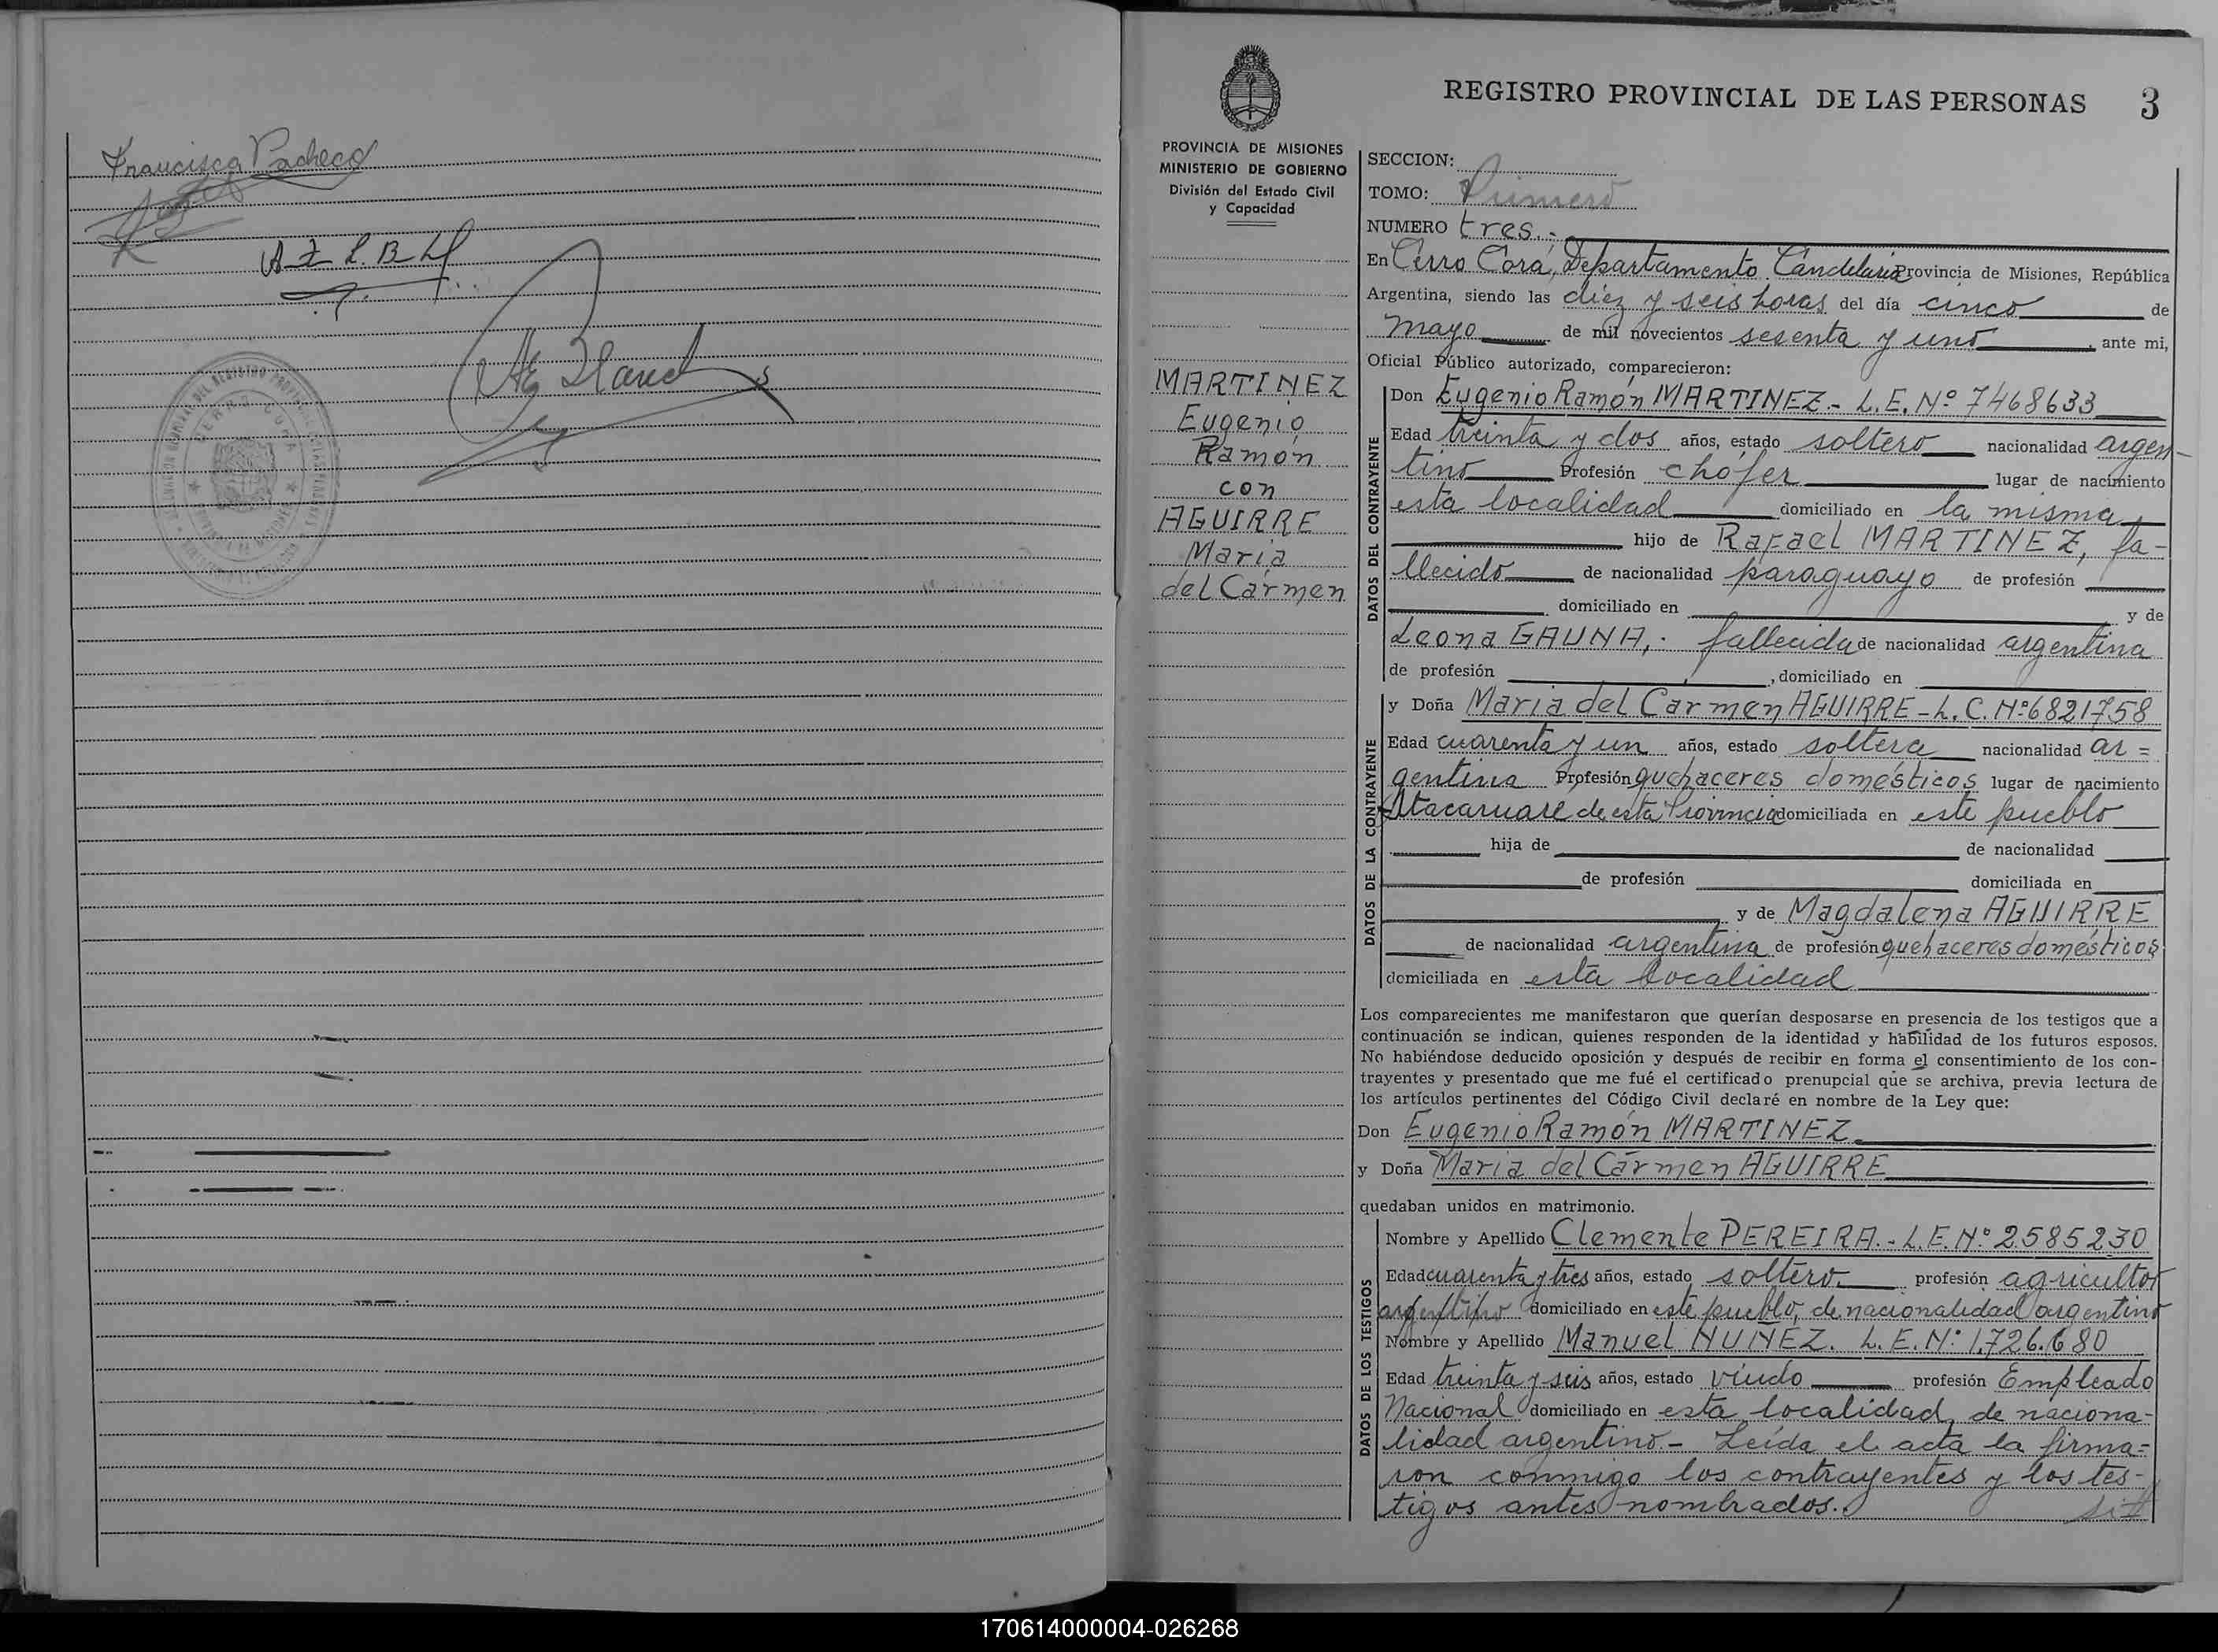 Francisca Pacheco
REGISTRO PROVINCIAL DE LAS PERSONAS 3
PROVINCIA DE MISIONES
MINISTERIO DE GOBIERNO
División del Estado Civil
y Capacidad
MARTINEZ
Eugenio
Ramón
con
AGUIRRE
María
del Cármen
SECCION:
TOMO: Primero
NUMERO tres.-
En Cerro Corá, Departamento Candelaria Provincia de Misiones, República
Argentina, siendo las diez y seis horas del día cinco de
mayo de mil novecientos sesenta y uno, ante mi,
Oficial Público autorizado, comparecieron:
DATOS DEL CONTRAYENTE
Don Eugenio Ramón MARTINEZ.- L.E. Nº 7468633
Edad treinta y dos años, estado soltero nacionalidad argen-
tino Profesión chófer lugar de nacimiento
esta localidad domiciliado en la misma
hijo de Rafael MARTINEZ, fa-
llecido de nacionalidad paraguayo de profesión
domiciliado en y de
Leona GAUNA,. fallecida de nacionalidad argentina
de profesión , domiciliado en
DATOS DE LA CONTRAYENTE
y Doña María del Carmen AGUIRRE - L.C. Nº 6821758
Edad cuarenta y un años, estado soltera nacionalidad ar=
gentina Profesión quehaceres domésticos lugar de nacimiento
Itacaruaré de esta Provincia domiciliada en este pueblo
hija de de nacionalidad
de profesión domiciliada en
y de Magdalena AGUIRRE
de nacionalidad argentina de profesión quehaceres domésticos
domiciliada en esta localidad
Los comparecientes me manifestaron que querían desposarse en presencia de los testigos que a
continuación se indican, quienes responden de la identidad y habilidad de los futuros esposos.
No habiéndose deducido oposición y después de recibir en forma el consentimiento de los con-
trayentes y presentado que me fué el certificado prenupcial que se archiva, previa lectura de
los artículos pertinentes del Código Civil declaré en nombre de la Ley que:
Don Eugenio Ramón MARTINEZ
y Doña María del Cármen AGUIRRE
quedaban unidos en matrimonio.
DATOS DE LOS TESTIGOS
Nombre y Apellido Clemente PEREIRA.- L.E. Nº 2585230
Edad cuarenta y tres años, estado soltero profesión agricultor
argentino domiciliado en este pueblo, de nacionalidad argentino
Nombre y Apellido Manuel NUÑEZ. L.E. Nº 1.726.680
Edad treinta y seis años, estado viudo profesión Empleado
Nacional domiciliado en esta localidad, de naciona-
lidad argentino.- Leída el acta la firma=
ron conmigo los contrayentes y los tes-
tigos antes nombrados.
170614000004-026268